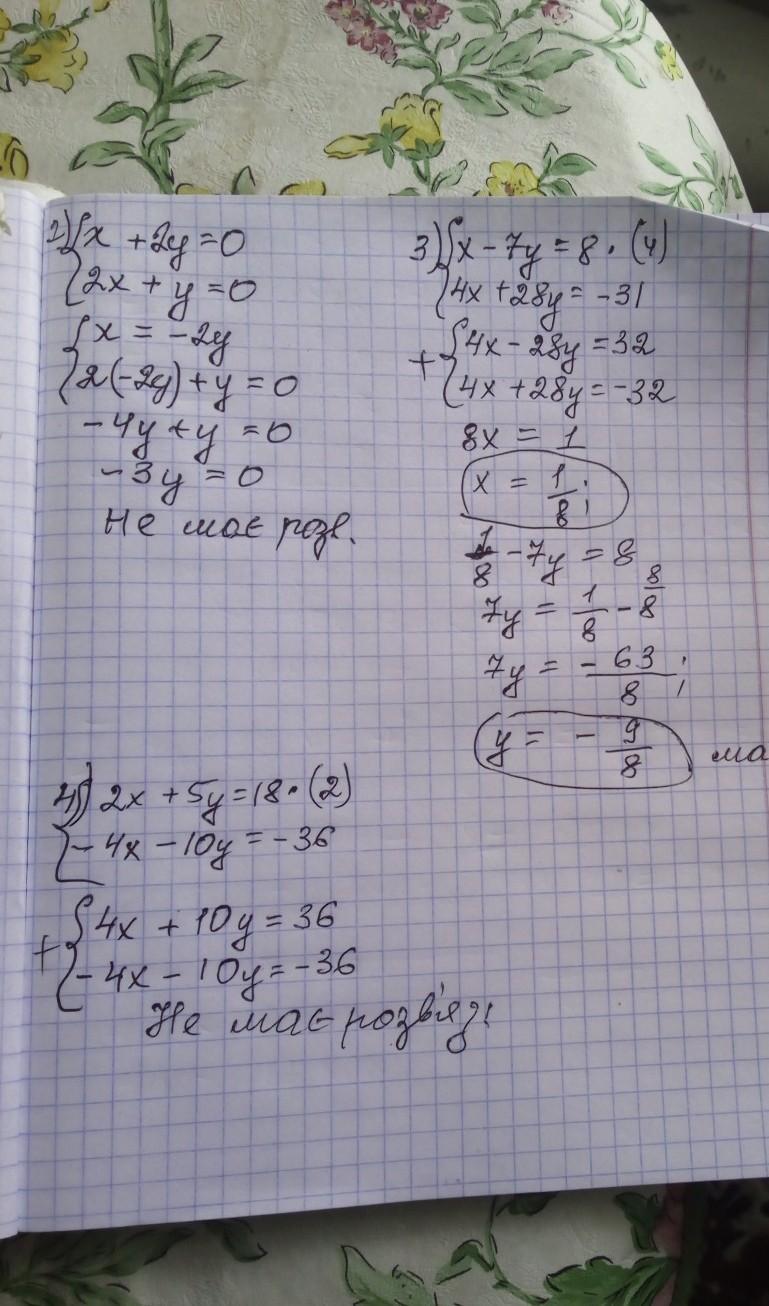 2) x + 2y = 0
2x + y = 0
x = -2y
2(-2y) + y = 0
-4y + y = 0
-3y = 0
Не має розв.
3) x - 7y = 8 · (4)
4x + 28y = -31
+ 4x - 28y = 32
4x + 28y = -32
8x = 1
x = 1/8;
1/8 - 7y = 8
7y = 1/8 - 8/8
7y = -63/8;
y = -9/8 ма
4) 2x + 5y = 18 · (2)
-4x - 10y = -36
+ 4x + 10y = 36
-4x - 10y = -36
Не має розв'яз